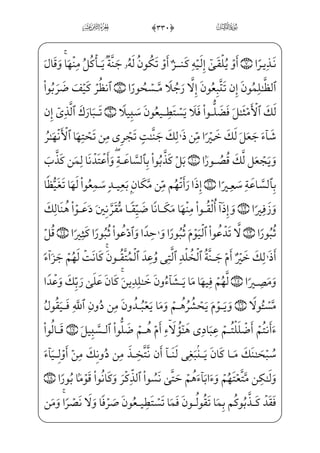 سورة الفرقان ﴿٣٣٠﴾ الجزء الثامن عشر
نَذِيرًا ﴿٧﴾ أَوْ يُلْقَىٰٓ إِلَيْهِ كَنزٌ أَوْ تَكُونُ لَهُۥ جَنَّةٌ يَأْكُلُ مِنْهَا ۚ وَقَالَ
ٱلظَّٰلِمُونَ إِن تَتَّبِعُونَ إِلَّا رَجُلًا مَّسْحُورًا ﴿٨﴾ ٱنظُرْ كَيْفَ ضَرَبُوا۟
لَكَ ٱلْأَمْثَٰلَ فَضَلُّوا۟ فَلَا يَسْتَطِيعُونَ سَبِيلًا ﴿٩﴾ تَبَارَكَ ٱلَّذِىٓ إِن
شَآءَ جَعَلَ لَكَ خَيْرًا مِّن ذَٰلِكَ جَنَّٰتٍ تَجْرِى مِن تَحْتِهَا ٱلْأَنْهَٰرُ
وَيَجْعَل لَّكَ قُصُورًۢا ﴿١٠﴾ بَلْ كَذَّبُوا۟ بِٱلسَّاعَةِ ۖ وَأَعْتَدْنَا لِمَن كَذَّبَ
بِٱلسَّاعَةِ سَعِيرًا ﴿١١﴾ إِذَا رَأَتْهُم مِّن مَّكَانٍۭ بَعِيدٍ سَمِعُوا۟ لَهَا تَغَيُّظًا
وَزَفِيرًا ﴿١٢﴾ وَإِذَآ أُلْقُوا۟ مِنْهَا مَكَانًا ضَيِّقًا مُّقَرَّنِينَ دَعَوْا۟ هُنَالِكَ
ثُبُورًا ﴿١٣﴾ لَّا تَدْعُوا۟ ٱلْيَوْمَ ثُبُورًا وَٰحِدًا وَٱدْعُوا۟ ثُبُورًا كَثِيرًا ﴿١٤﴾ قُلْ
أَذَٰلِكَ خَيْرٌ أَمْ جَنَّةُ ٱلْخُلْدِ ٱلَّتِى وُعِدَ ٱلْمُتَّقُونَ ۚ كَانَتْ لَهُمْ جَزَآءً
وَمَصِيرًا ﴿١٥﴾ لَّهُمْ فِيهَا مَا يَشَآءُونَ خَٰلِدِينَ ۚ كَانَ عَلَىٰ رَبِّكَ وَعْدًا
مَّسْـُٔولًا ﴿١٦﴾ وَيَوْمَ يَحْشُرُهُمْ وَمَا يَعْبُدُونَ مِن دُونِ ٱللَّهِ فَيَقُولُ
ءَأَنتُمْ أَضْلَلْتُمْ عِبَادِى هَٰٓؤُلَآءِ أَمْ هُمْ ضَلُّوا۟ ٱلسَّبِيلَ ﴿١٧﴾ قَالُوا۟
سُبْحَٰنَكَ مَا كَانَ يَنۢبَغِى لَنَآ أَن نَّتَّخِذَ مِن دُونِكَ مِنْ أَوْلِيَآءَ
وَلَٰكِن مَّتَّعْتَهُمْ وَءَابَآءَهُمْ حَتَّىٰ نَسُوا۟ ٱلذِّكْرَ وَكَانُوا۟ قَوْمًۢا بُورًا ﴿١٨﴾
فَقَدْ كَذَّبُوكُم بِمَا تَقُولُونَ فَمَا تَسْتَطِيعُونَ صَرْفًا وَلَا نَصْرًا ۚ وَمَن